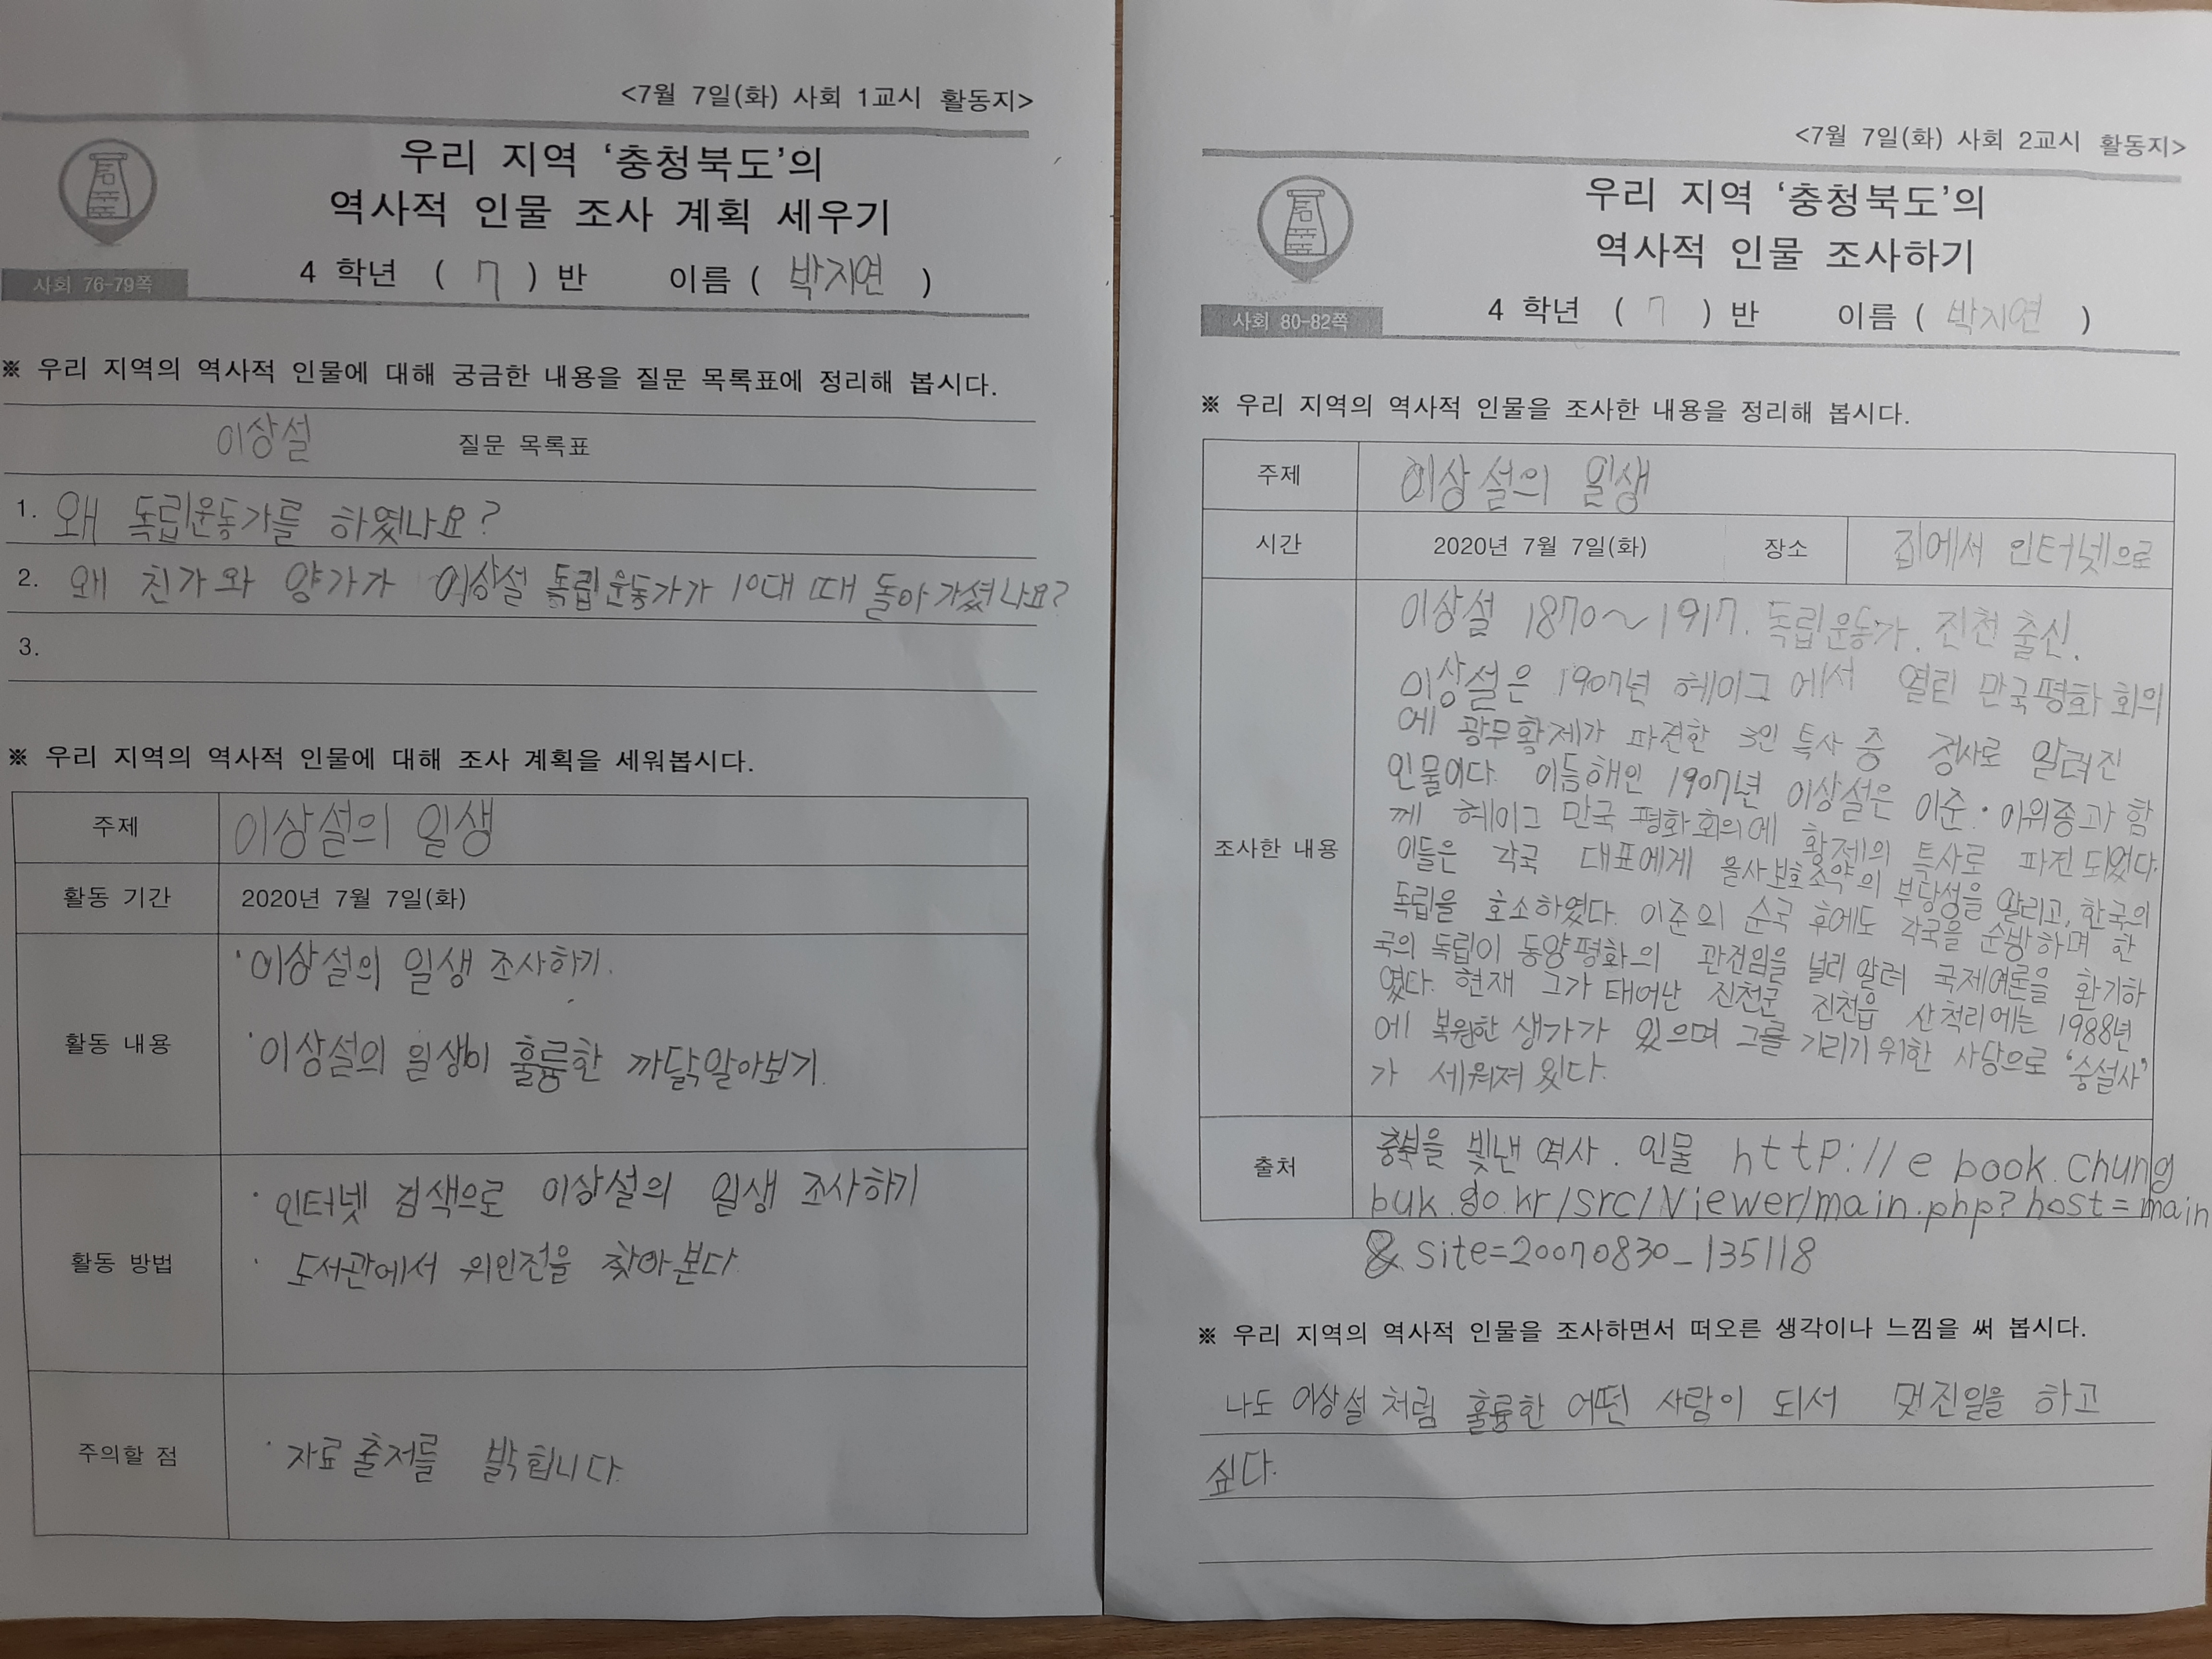 <7월 7일(화) 사회 1교시 활동지>
우리 지역 '충청북도'의
역사적 인물 조사 계획 세우기
사회 76-79쪽
4 학년 ( 7 ) 반 이름 ( 박지연 )
※ 우리 지역의 역사적 인물에 대해 궁금한 내용을 질문 목록표에 정리해 봅시다.
이상설 질문 목록표
1. 왜 독립운동가를 하였나요?
2. 왜 친가와 양가가 이상설 독립운동가가 10대 때 돌아가셨나요?
3.
※ 우리 지역의 역사적 인물에 대해 조사 계획을 세워봅시다.
주제 이상설의 일생
활동 기간 2020년 7월 7일(화)
활동 내용
· 이상설의 일생 조사하기.
· 이상설의 일생이 훌륭한 까닭알아보기.
활동 방법
· 인터넷 검색으로 이상설의 일생 조사하기
· 도서관에서 위인전을 찾아본다
주의할 점 · 자료출저를 밝힙니다.
<7월 7일(화) 사회 2교시 활동지>
우리 지역 '충청북도'의
역사적 인물 조사하기
사회 80-82쪽
4 학년 ( 7 ) 반 이름 ( 박지연 )
※ 우리 지역의 역사적 인물을 조사한 내용을 정리해 봅시다.
주제 이상설의 일생
시간 2020년 7월 7일(화) 장소 집에서 인터넷으로
조사한 내용
이상설 1870~1917. 독립운동가. 진천 출신.
이상설은 1907년 헤이그에서 열린 만국평화회의
에 광무황제가 파견한 3인 특사 중 정사로 알려진
인물이다. 이듬해인 1907년 이상설은 이준·이위종과 함
께 헤이그 만국평화회의에 황제의 특사로 파견되었다.
이들은 각국 대표에게 을사보호조약의 부당성을 알리고, 한국의
독립을 호소하였다. 이준의 순국 후에도 각국을 순방하며 한
국의 독립이 동양평화의 관건임을 널리 알려 국제여론을 환기하
였다. 현재 그가 태어난 진천군 진천읍 산척리에는 1988년
에 복원한 생가가 있으며 그를 기리기위한 사당으로 '숭설사'
가 세워져 있다.
출처
충북을 빛낸 역사. 인물 http://ebook.chung
buk.go.kr/src/Viewer/main.php?host=main
& site=20070830_135118
※ 우리 지역의 역사적 인물을 조사하면서 떠오른 생각이나 느낌을 써 봅시다.
나도 이상설처럼 훌륭한 어떤 사람이 되서 멋진일을 하고
싶다.